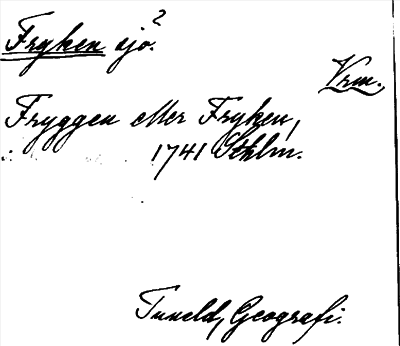 Fryken sjö.?
Vrm.
Fryggen eller Fryken,
1741 Sthlm.
Tuneld, Geografi.